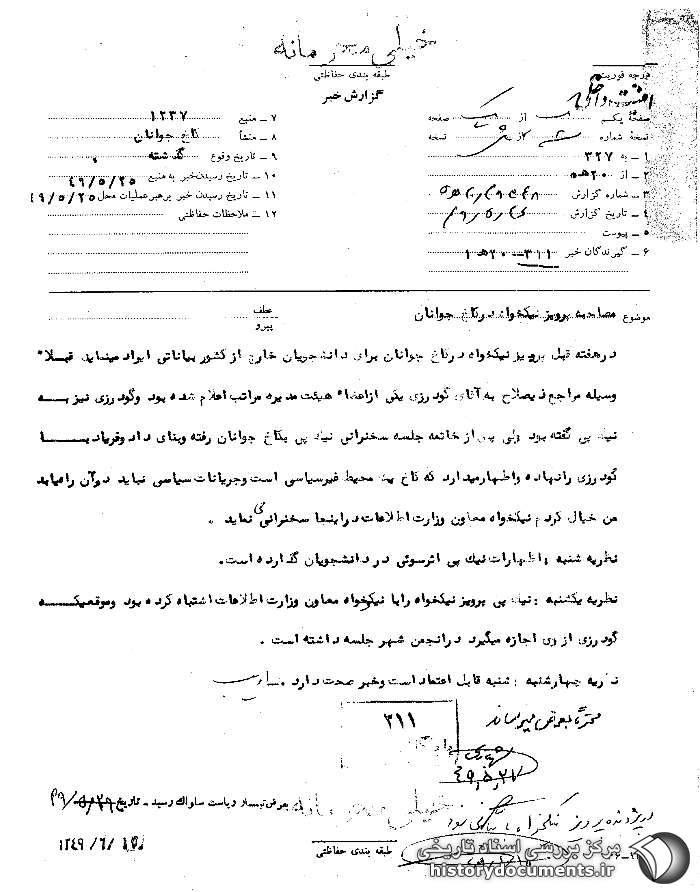 خیلی محرمانه
طبقه بندی حفاظتی
گزارش خبر
درجه فوریت
صفحه یکم از یک صفحه
نسخه شماره از نسخه
۱ ـ به ۳۲۷
۲ ـ از ۲۰ه۵
۳ ـ شماره گزارش
۴ ـ تاریخ گزارش
۵ ـ پیوست
۶ ـ گیرندگان خبر ۳۱۱ـ۲۰ه۱
۷ ـ منبع ۱۲۳۷
۸ ـ منشأ کاخ جوانان
۹ ـ تاریخ وقوع گذشته
۱۰ ـ تاریخ رسیدن خبر به منبع ۴۹/۵/۲۵
۱۱ ـ تاریخ رسیدن خبر برهبر عملیات محل ۴۹/۵/۲۵
۱۲ ـ ملاحظات حفاظتی
موضوع مصاحبه پرویز نیکخواه در کاخ جوانان
عطف
پیرو
در هفته قبل پرویز نیکخواه در کاخ جوانان برای دانشجویان خارج از کشور بیاناتی ایراد مینماید قبلاً
وسیله مراجع ذیصلاح به آقای گودرزی یکی از اعضاء هیئت مدیره مراتب اعلام شده بود و گودرزی نیز به
نیک پی گفته بود ولی پس از خاتمه جلسه سخنرانی نیک پی بکاخ جوانان رفته و بنای داد و فریاد با
گودرزی را نهاده و اظهار میدارد که کاخ یک محیط غیرسیاسی است و جریانات سیاسی نباید در آن راه یابد
من خیال کردم نیکخواه معاون وزارت اطلاعات در اینجا سخنرانی می نماید .
نظریه شنبه : اظهارات نیک پی اثر سوئی در دانشجویان گذارده است.
نظریه یکشنبه : نیک پی پرویز نیکخواه را با نیکخواه معاون وزارت اطلاعات اشتباه کرده بود و موقعیکه
گودرزی از وی اجازه میگیرد در انجمن شهر جلسه داشته است .
نظریه چهارشنبه : شنبه قابل اعتماد است و خبر صحت دارد .
محترماً بعرض میرساند
۳۱۱
۴۹/۵/۲۷
بعرض تیمسار ریاست ساواک رسید ـ تاریخ ۴۹/۵/۲۹
در پرونده پرویز نیکخواه بایگانی شود
خیلی محرمانه
طبقه بندی حفاظتی
مرکز بررسی اسناد تاریخی
historydocuments.ir